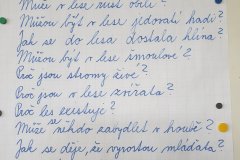 Může v lese růst obilí?
Můžou být v lese jedovatí hadi?
Jak se do lesa dostala hlína?
Můžou být v lese šmoulové?
Proč jsou stromy živé?
Proč jsou v lese zvířata?
Proč les existuje?
Může někdo zabydlit v houbě?
Jak se děje, že vyrostou mláďata?